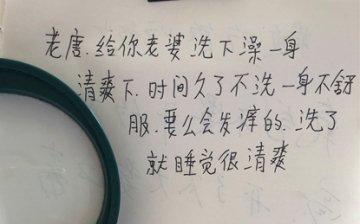 老唐.给你老婆洗下澡一身
清爽下.时间久了不洗一身不舒
服.要么会发痒的.洗了
就睡觉很清爽